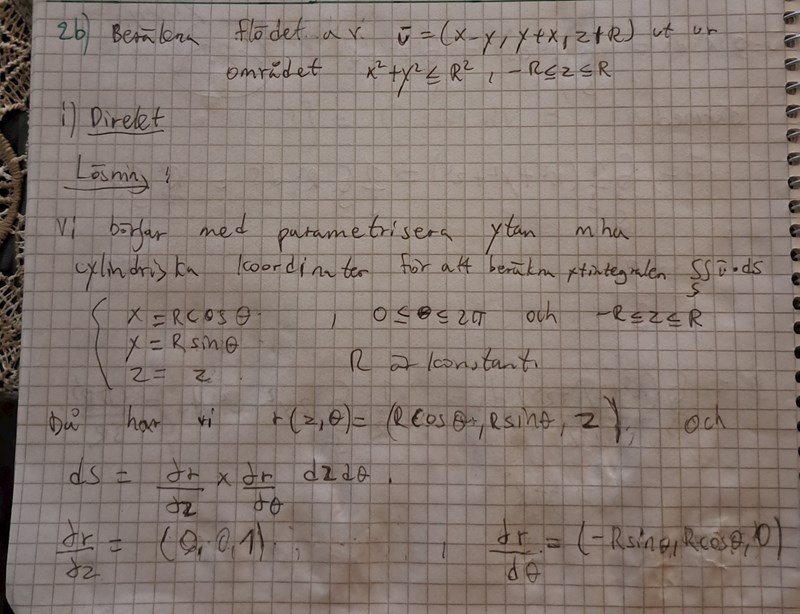 2b) Beräkna flödet av ū = (x-y, y+x, z+R) ut ur
området x² + y² ≤ R², -R ≤ z ≤ R
i) Direkt
Lösning:
Vi börjar med parametrisera ytan mha
cylindriska koordinater för att beräkna ytintegralen ∬_S ū • ds
{ x = R cos θ , 0 ≤ θ ≤ 2π och -R ≤ z ≤ R
y = R sin θ
z = z R är konstant.
Då har vi r(z,θ) = (R cos θ, R sin θ, z), och
ds = ∂r/∂z × ∂r/∂θ dz dθ.
∂r/∂z = (0, 0, 1) , ∂r/∂θ = (-R sin θ, R cos θ, 0)